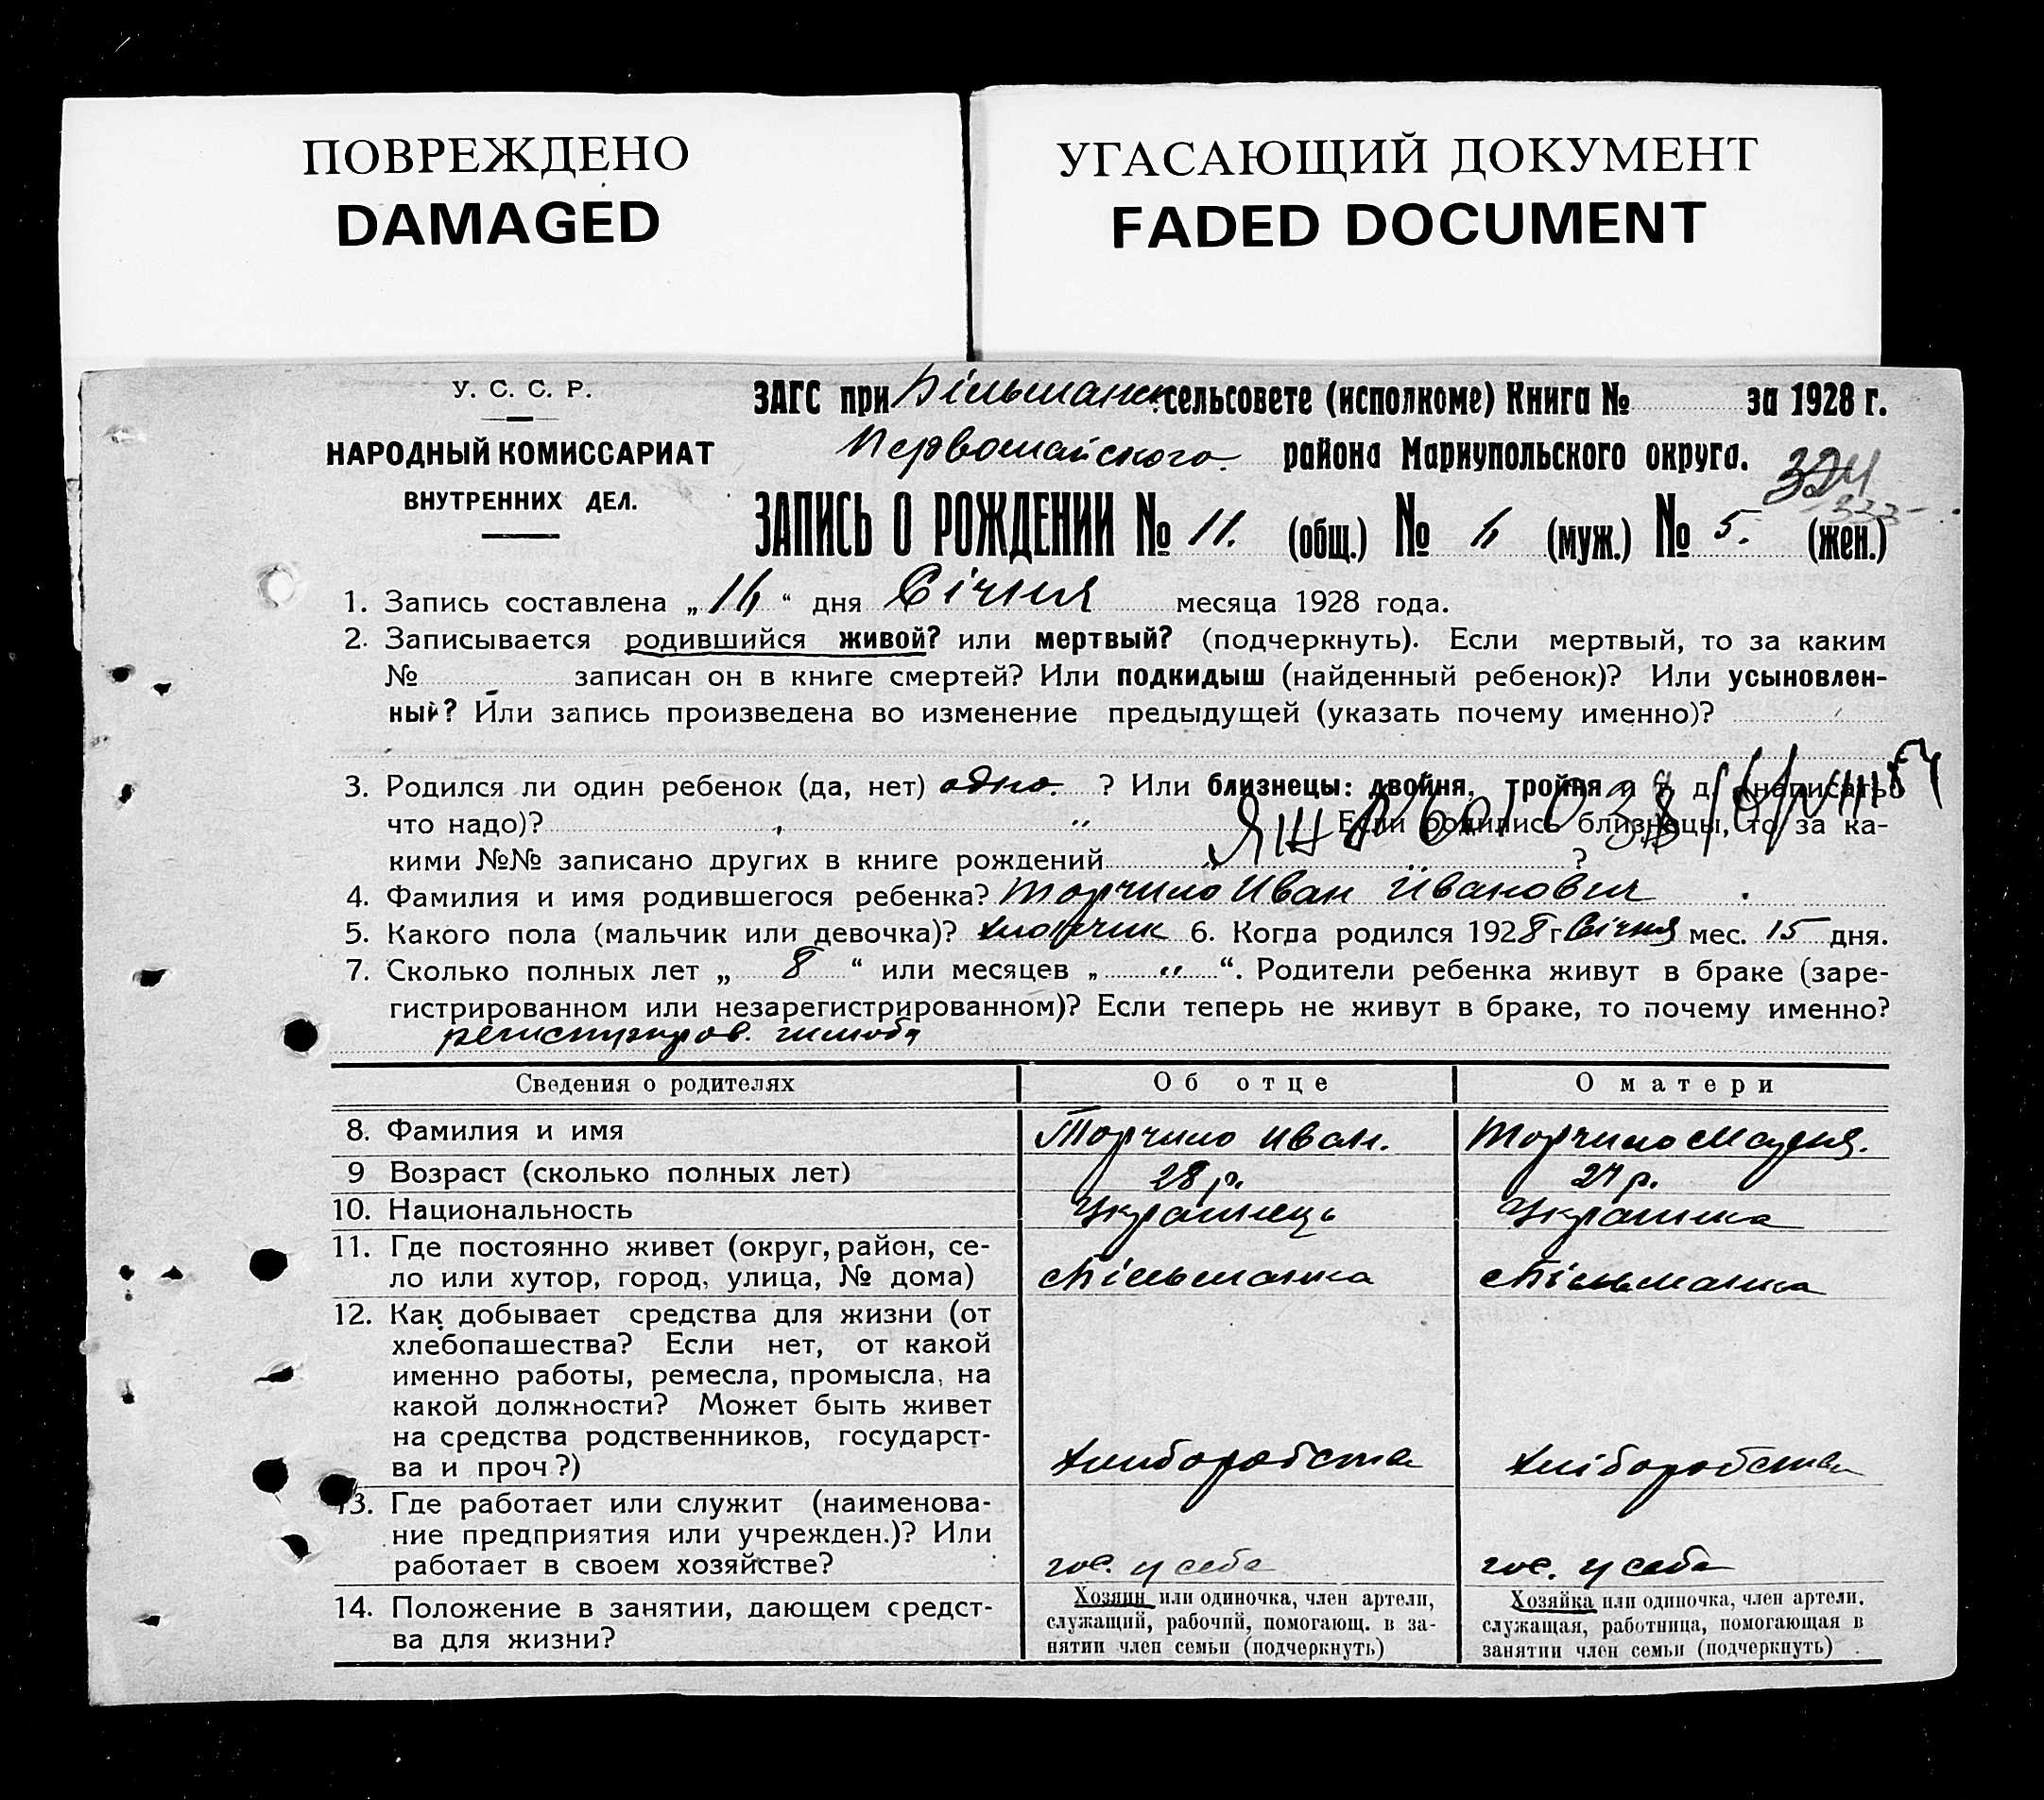 ПОВРЕЖДЕНО
DAMAGED
УГАСАЮЩИЙ ДОКУМЕНТ
FADED DOCUMENT
У. С. С. Р.
НАРОДНЫЙ КОМИССАРИАТ
ВНУТРЕННИХ ДЕЛ.
ЗАГС при сельсовете (исполкоме) Книга № за 1928 г.
Первомайского района Мариупольского округа.
324
333
ЗАПИСЬ О РОЖДЕНИИ № 11. (общ.) № 6 (муж.) № 5. (жен.)
1. Запись составлена „ 16 “ дня Січня месяца 1928 года.
2. Записывается родившийся живой? или мертвый? (подчеркнуть). Если мертвый, то за каким
№ - записан он в книге смертей? Или подкидыш (найденный ребенок)? Или усыновлен-
ный? Или запись произведена во изменение предыдущей (указать почему именно)?
3. Родился ли один ребенок (да, нет) одно. ? Или близнецы: двойня, тройня и т. д. написать
что надо)? " Если родились близнецы, то за ка-
кими №№ записано других в книге рождений ?
4. Фамилия и имя родившегося ребенка? Иван Иванович
5. Какого пола (мальчик или девочка)? хлопчик 6. Когда родился 1928 г Січня мес. 15 дня.
7. Сколько полных лет „ 8 “ или месяцев „ " “. Родители ребенка живут в браке (заре-
гистрированном или незарегистрированном)? Если теперь не живут в браке, то почему именно?
регистриров. шлюб
Сведения о родителях
Об отце
О матери
8. Фамилия и имя
Иван.
9 Возраст (сколько полных лет)
28 р.
27 р.
10. Национальность
Українець
Українка
11. Где постоянно живет (округ, район, се-
ло или хутор, город, улица, № дома)
12. Как добывает средства для жизни (от
хлебопашества? Если нет, от какой
именно работы, ремесла, промысла, на
какой должности? Может быть живет
на средства родственников, государст-
ва и проч?)
хліборобства
хліборобства
13. Где работает или служит (наименова-
ние предприятия или учрежден.)? Или
работает в своем хозяйстве?
гос. у себе
гос. у себе
14. Положение в занятии, дающем средст-
ва для жизни?
Хозяин или одиночка, член артели,
служащий, рабочий, помогающ. в за-
нятии член семьи (подчеркнуть)
Хозяйка или одиночка, член артели,
служащая, работница, помогающая в
занятии член семьи (подчеркнуть)